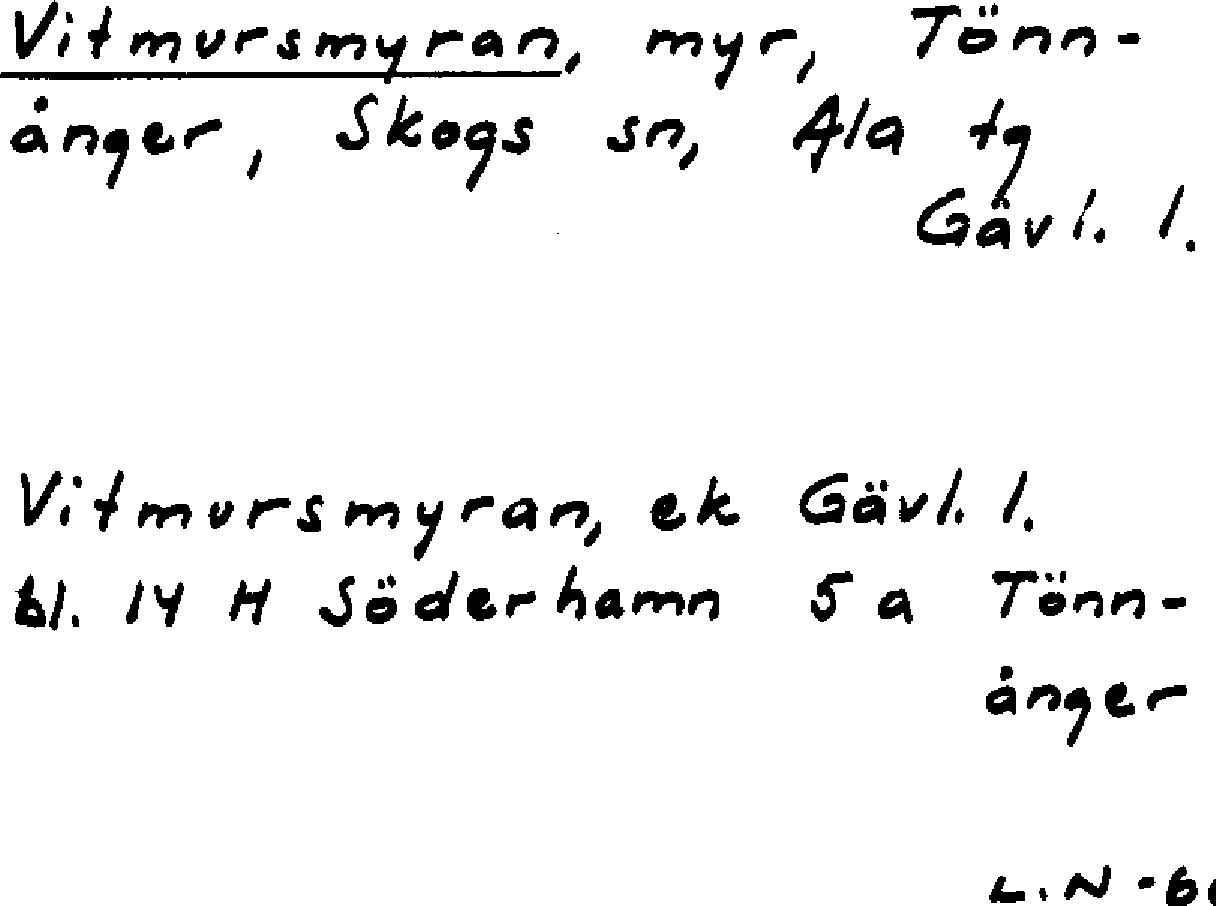 Vitmursmyran, myr, Tönn-
ånger, Skogs sn, Ala tg
Gävl. l.
Vitmursmyran, ek Gävl. l.
bl. 14 H Söderhamn 5 a Tönn-
ånger
L.N